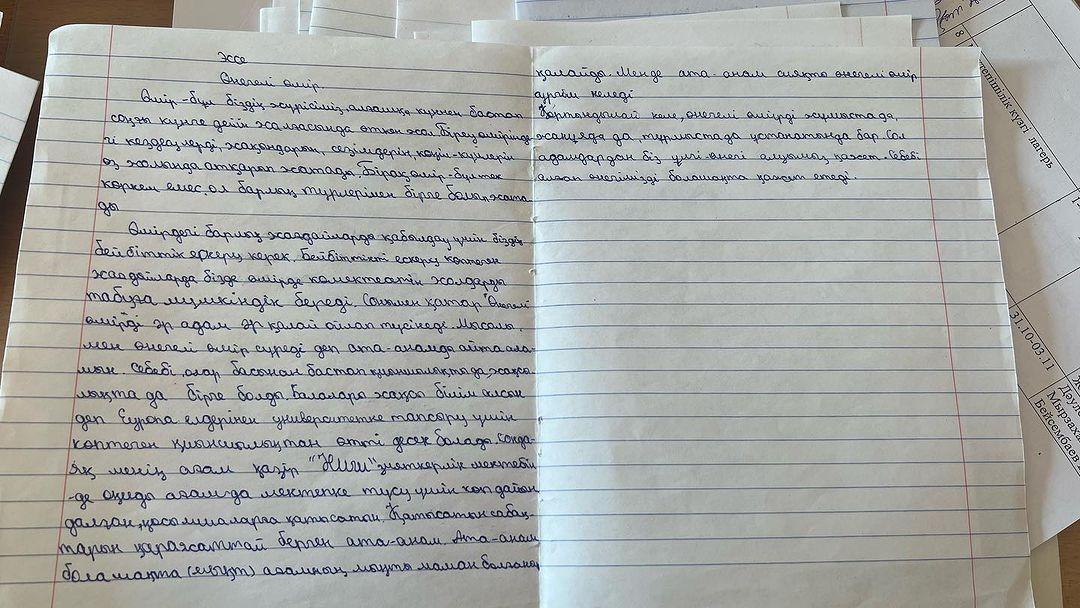 эссе
Өнегелі өмір.
Өмір-бұл біздің жүрісіміз, алғашқы күннен бастап
соңғы күнге дейін жалғасында өткен жол. Біреу өмірінде-
гі кездесулерді, жақындарын, сезімдерін, көңіл-күйлерін
өз жолында атқарып жатады. Бірақ, өмір-бұл тек
көркем емес, ол барлық түрлерімен бірге болып жата-
ды
Өмірдегі барлық жағдайларда қабылдау үшін біздің
бейбіттік ескеру керек. Бейбіттікті ескеру көптеген
жағдайларда бізде өмірде көмектесетін жолдарды
табуға мүмкіндік береді. Сонымен қатар "Өнегелі
өмірді" әр адам әр қалай ойлап түсінеді. Мысалы,
мен өнегелі өмір сүреді деп ата-анамды айта ала-
мын. Себебі, олар басынан бастап қиыншылықтыда, жақсы
лықта да бірге болды. Балалары жақсы білім алсын
деп Еуропа елдерінен университетке тапсыру үшін
көптеген қиыншылықтан өтті десек болады. Сонда-
яқ менің ағам қазір "Ниш" зияткерлік мектебін
-де оқиды ағамда мектепке түсу үшін көп дайын
далған, қосымшаларға қатысатын. Қатысатын сабақ-
тарын қаражаттай берген ата-анам. Ата-анам
болашақта ағамның мықты маман болғанын
қалайды. Менде ата-анам сияқты өнегелі өмір
сүргім келеді
Қортындылай келе, өнегелі өмірді жұмыста да,
жанұяда да, тұрмыстада ұстанатында бар. Сол
адамдардан біз үлгі-өнеге алуымыз қажет. Себебі
алған өнегімізді болашақта қажет етеді.
8
шілік күзгі лагерь
31.10-03.11
Дәул
Мырзах
Бейсембаев